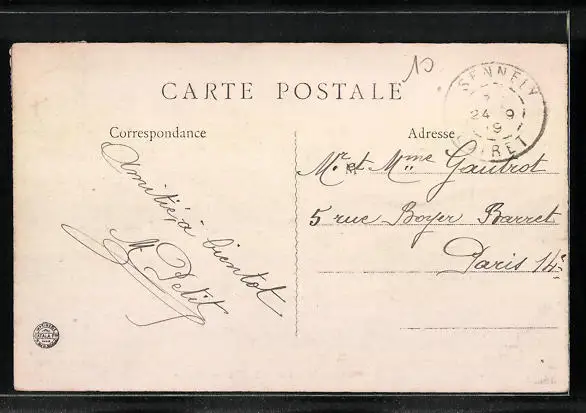 CARTE POSTALE
SENNELY
24 - 9
19
LOIRET
Correspondance
Adresse
Amitiés, à bientot
M Petit
Mr et Mme Gautrot
5 rue Boyer Barret
Paris 14e